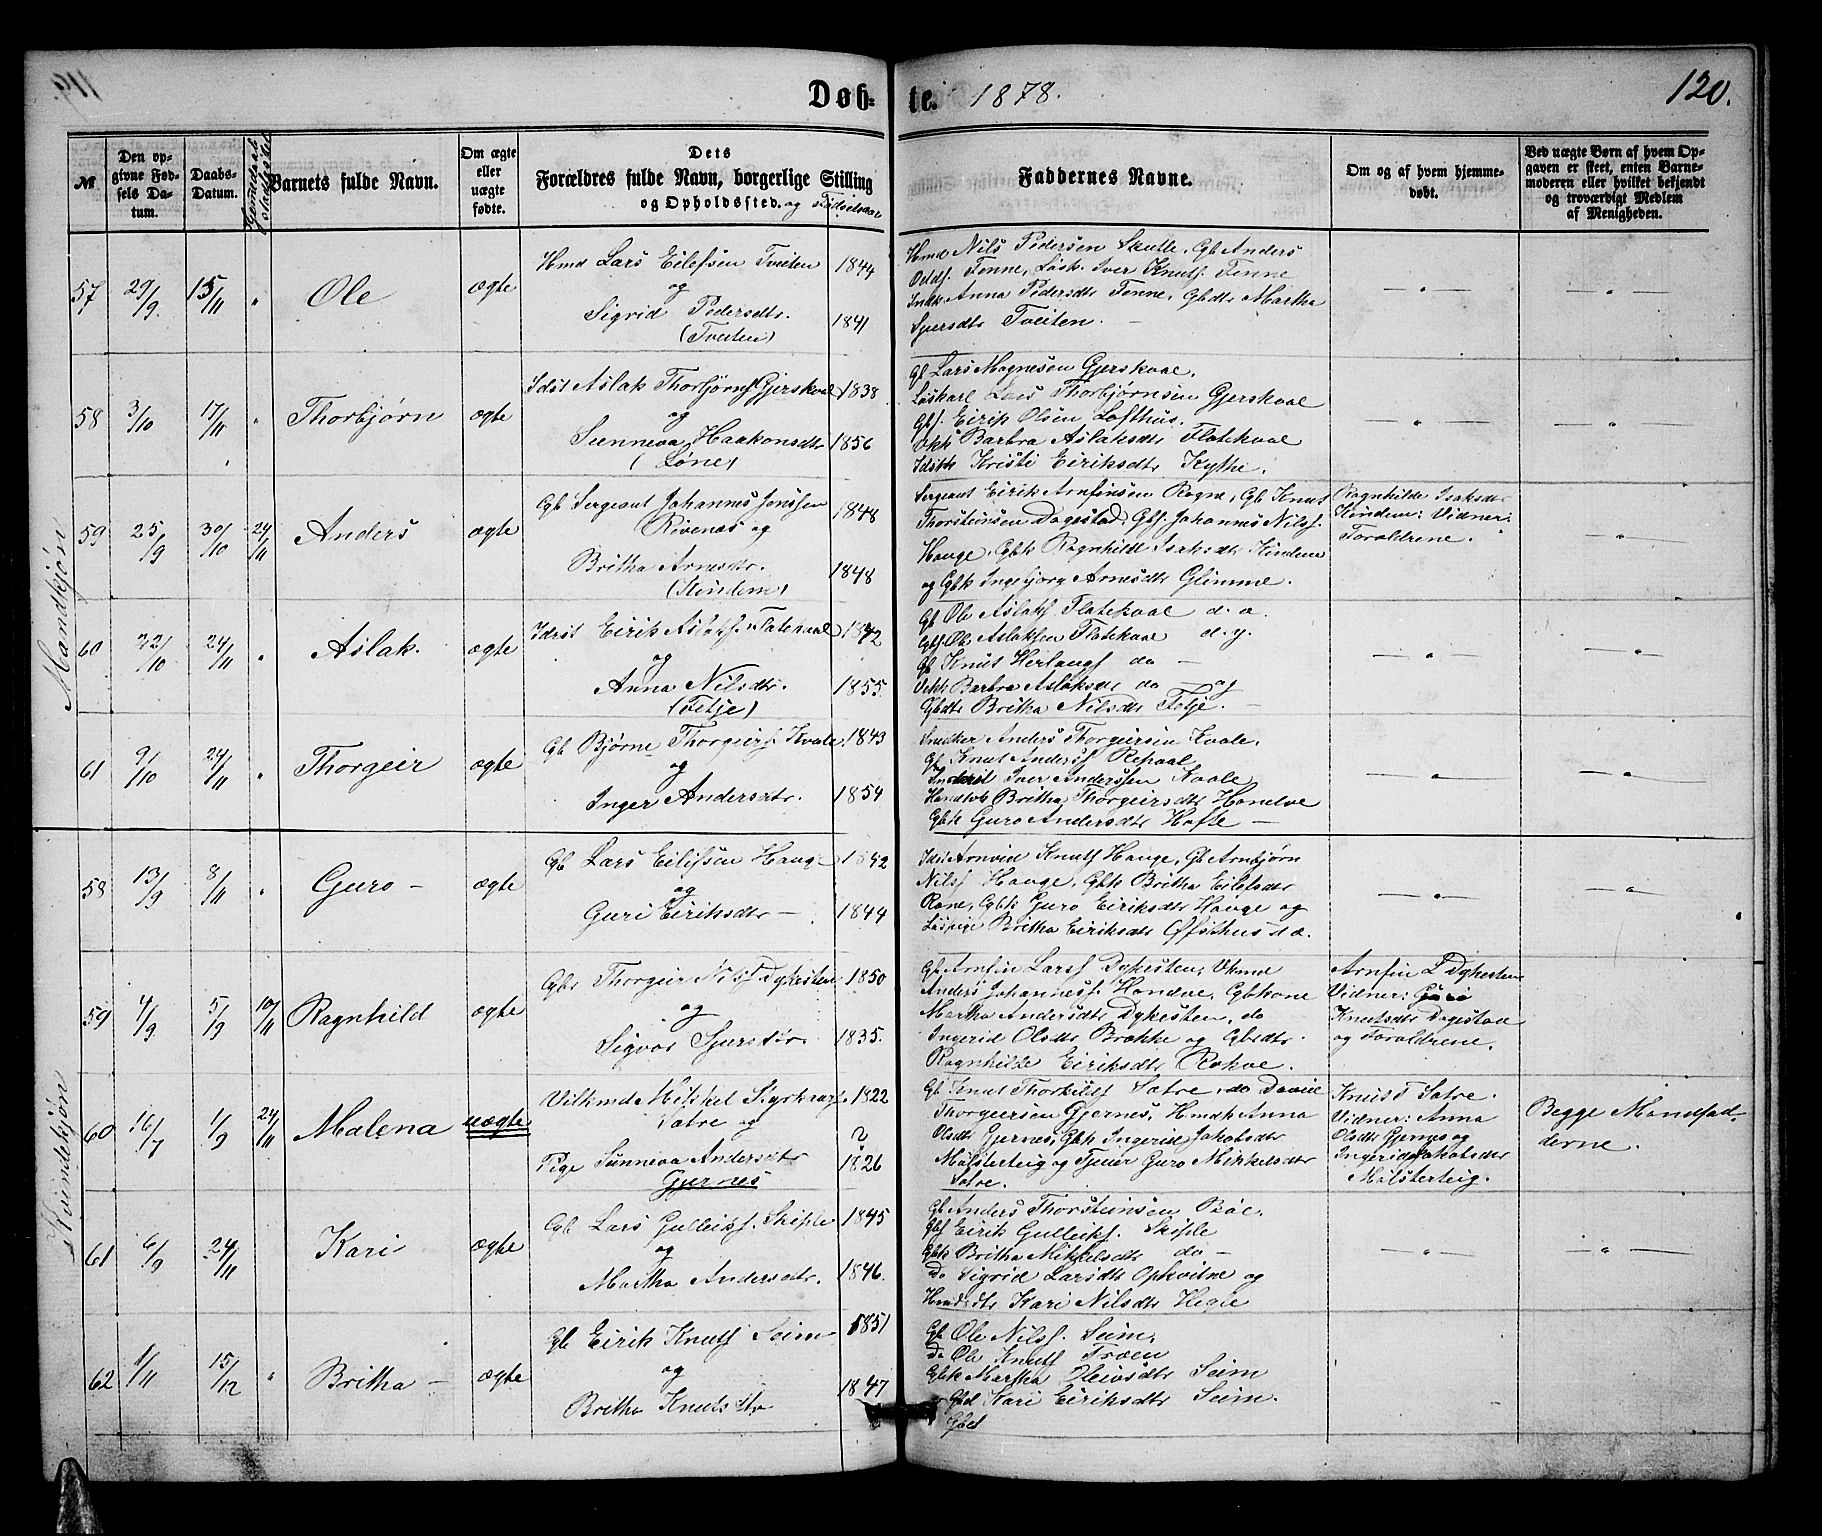 119.
Døb-
te. 1878.
120.
№
Den op-
givne Fød-
sels Da-
tum.
Daabs-
Datum.
Barnets fulde Navn.
Om ægte
eller
uægte
fødte.
Dets
Forældres fulde Navn, borgerlige Stilling
og Opholdssted. og Fødselsaar
Faddernes Navne.
Om og af hvem hjemme-
døbt.
Ved uægte Børn af hvem Op-
gaven er skeet, enten Barne-
moderen eller hvilket bekjendt
og troværdigt Medlem
af Menigheden.
Mandkjøn
57 29/9. 15/11 " Ole ægte
Hmd Lars Eilefsen Tveiten 1844
og
Sigrid Pedersdtr. 1841
(Tveiten)
Hmd Nils Pedersen Skutle, Gb Anders
Oddsf. Tenne, Løsk. Iver Knutsf. Tenne
Indk Anna Pedersdtr Tenne, Gbdtr Martha
Sjursdtr Tveiten. —
— " —
— " —
58 3/10 17/11 " Thorbjørn ægte
Idst Aslak Thorbjørnsf Gjerskvael 1838
og
Sunneva Haakonsdtr 1856
(Løne)
Gb Lars Magnesen Gjerskvael.
Løskarl Lars Thorbjørnsen Gjerskvael
Gbf. Eirik Olsen Lofthus.
Barbra Aslaksdtr Flatekvaal
Kristi Eiriksdtr Kythe.
— " —
— " —
59 25/9 30/10 24/11 Anders ægte
Gb Sergeant Johannes Jonssen 1848
Rivenes og
Britha Arnesdtr. 1848
(Kindem)
Sergeant Eirik Arnfinsen Rogne, Gb Knut
Thorsteinsen Dagestad, Gbf. Johannes Nilsf.
Hauge, Gbk Ragnhild Isaksdtr Kindem
og Gbk Ingebjørg Arnesdtr Glimme.
Ragnhilde Isaksdtr
Kindem: Vidner:
Forældrene.
— " —
60 22/10 24/11 " Aslak. ægte
Idrst Eirik Aslaksf. Flatekvaal 1842
og
Anna Nilsdtr. 1855
(Fetje)
Gb Ole Aslaksf Flatekvaal d. æ.
Gbf Ole Aslaksen Flatekvaal d. y.
Gb Knut Herlaugsf do —
Barbra Aslaksdtr do — og
Gbdtr Britha Nilsdtr Fetje. —
— " —
— " —
61 9/10 24/11 " Thorgeir ægte
Gb Bjørne Thorgeirsf. Kvale. 1843
og
Inger Andersdtr. 1854
Snedker Anders Thorgeirsen Kvale.
Gb Knut Andersf Repaal
Iver Anderssen Kvale
Britha Thorgeirsdtr Handve
Gbk Guro Andersdtr Hefte —
— " —
— " —
Kvindekjøn
58 13/9 8/11 " Guro — ægte
Gb Lars Eilifsen Hauge 1842
og
Guri Eiriksdtr — 1844
Idst Arnvid Knutsf Hauge, Gb Arnbjørn
Nilsf Hauge, Gbk Britha Eilefsdtr
Rone, Gbk Guro Eiriksdtr Hauge og
Løspige Britha Eiriksdtr Øfsthus d.æ.
— " —
— " —
59 4/9 5/9 10/11 Ragnhild ægte
Gbr Thorgeir Nilsf. Dykesten 1850
og
Sigvor Sjursdtr. 1835.
Gb Arnfin Larsf Dykesten, Ukmd
Anders Johannesf. Handve, Gbkone
Martha Andersdtr Dykesten, do
Ingerid Olsdtr Brække og Gbdtr.
Ragnhilde Eiriksdtr Rokve.
Arnfin L Dykesten
Vidner: Guri
Knutsdtr Dagestad
og Forældrene.
60 16/7 1/9 24/11 Malena uægte
Vilkmd Mikkel Styrkaarsf. 1822
Satre og
Pige Sunneva Andersdtr 1826
Gjernes
Gb Knut Thorkildsf Satre, do David
Thorgeirsen Gjernes, Hmdk Anna
Olsdtr Gjernes, Gbk Ingerid Jakobsdtr
Mølsterteig og Tjener Guro Mikkelsdtr
Satre.
Knut T Satre.
Vidner: Anna
Olsdtr Gjernes og
Ingerid Jakobsdtr
Mølsterteig.
Begge Mandfad-
derne.
61 6/9 24/11 Kari ægte
Gb Lars Gulleiksf. Skiple 1845
og
Martha Andersdtr. 1846.
Gb Anders Thorsteinsen Bøe.
Gbf Eirik Gulleiksf. Skiple
Gbk Britha Mikkelsdtr do —
Do Sigrid Larsdtr Opkvitne og
Kari Nilsdtr Hegle
— " —
— " —
62 1/11 15/12 " Britha — ægte
Gb Eirik Knutsf Seim 1851
og
Britha Knutsdtr 1847
Gb Ole Nilsf. Seim,
do Ole Knutsf Træen
Gbk Martha Olsdtr Seim
Gbd Kari Eiriksdtr Seim.